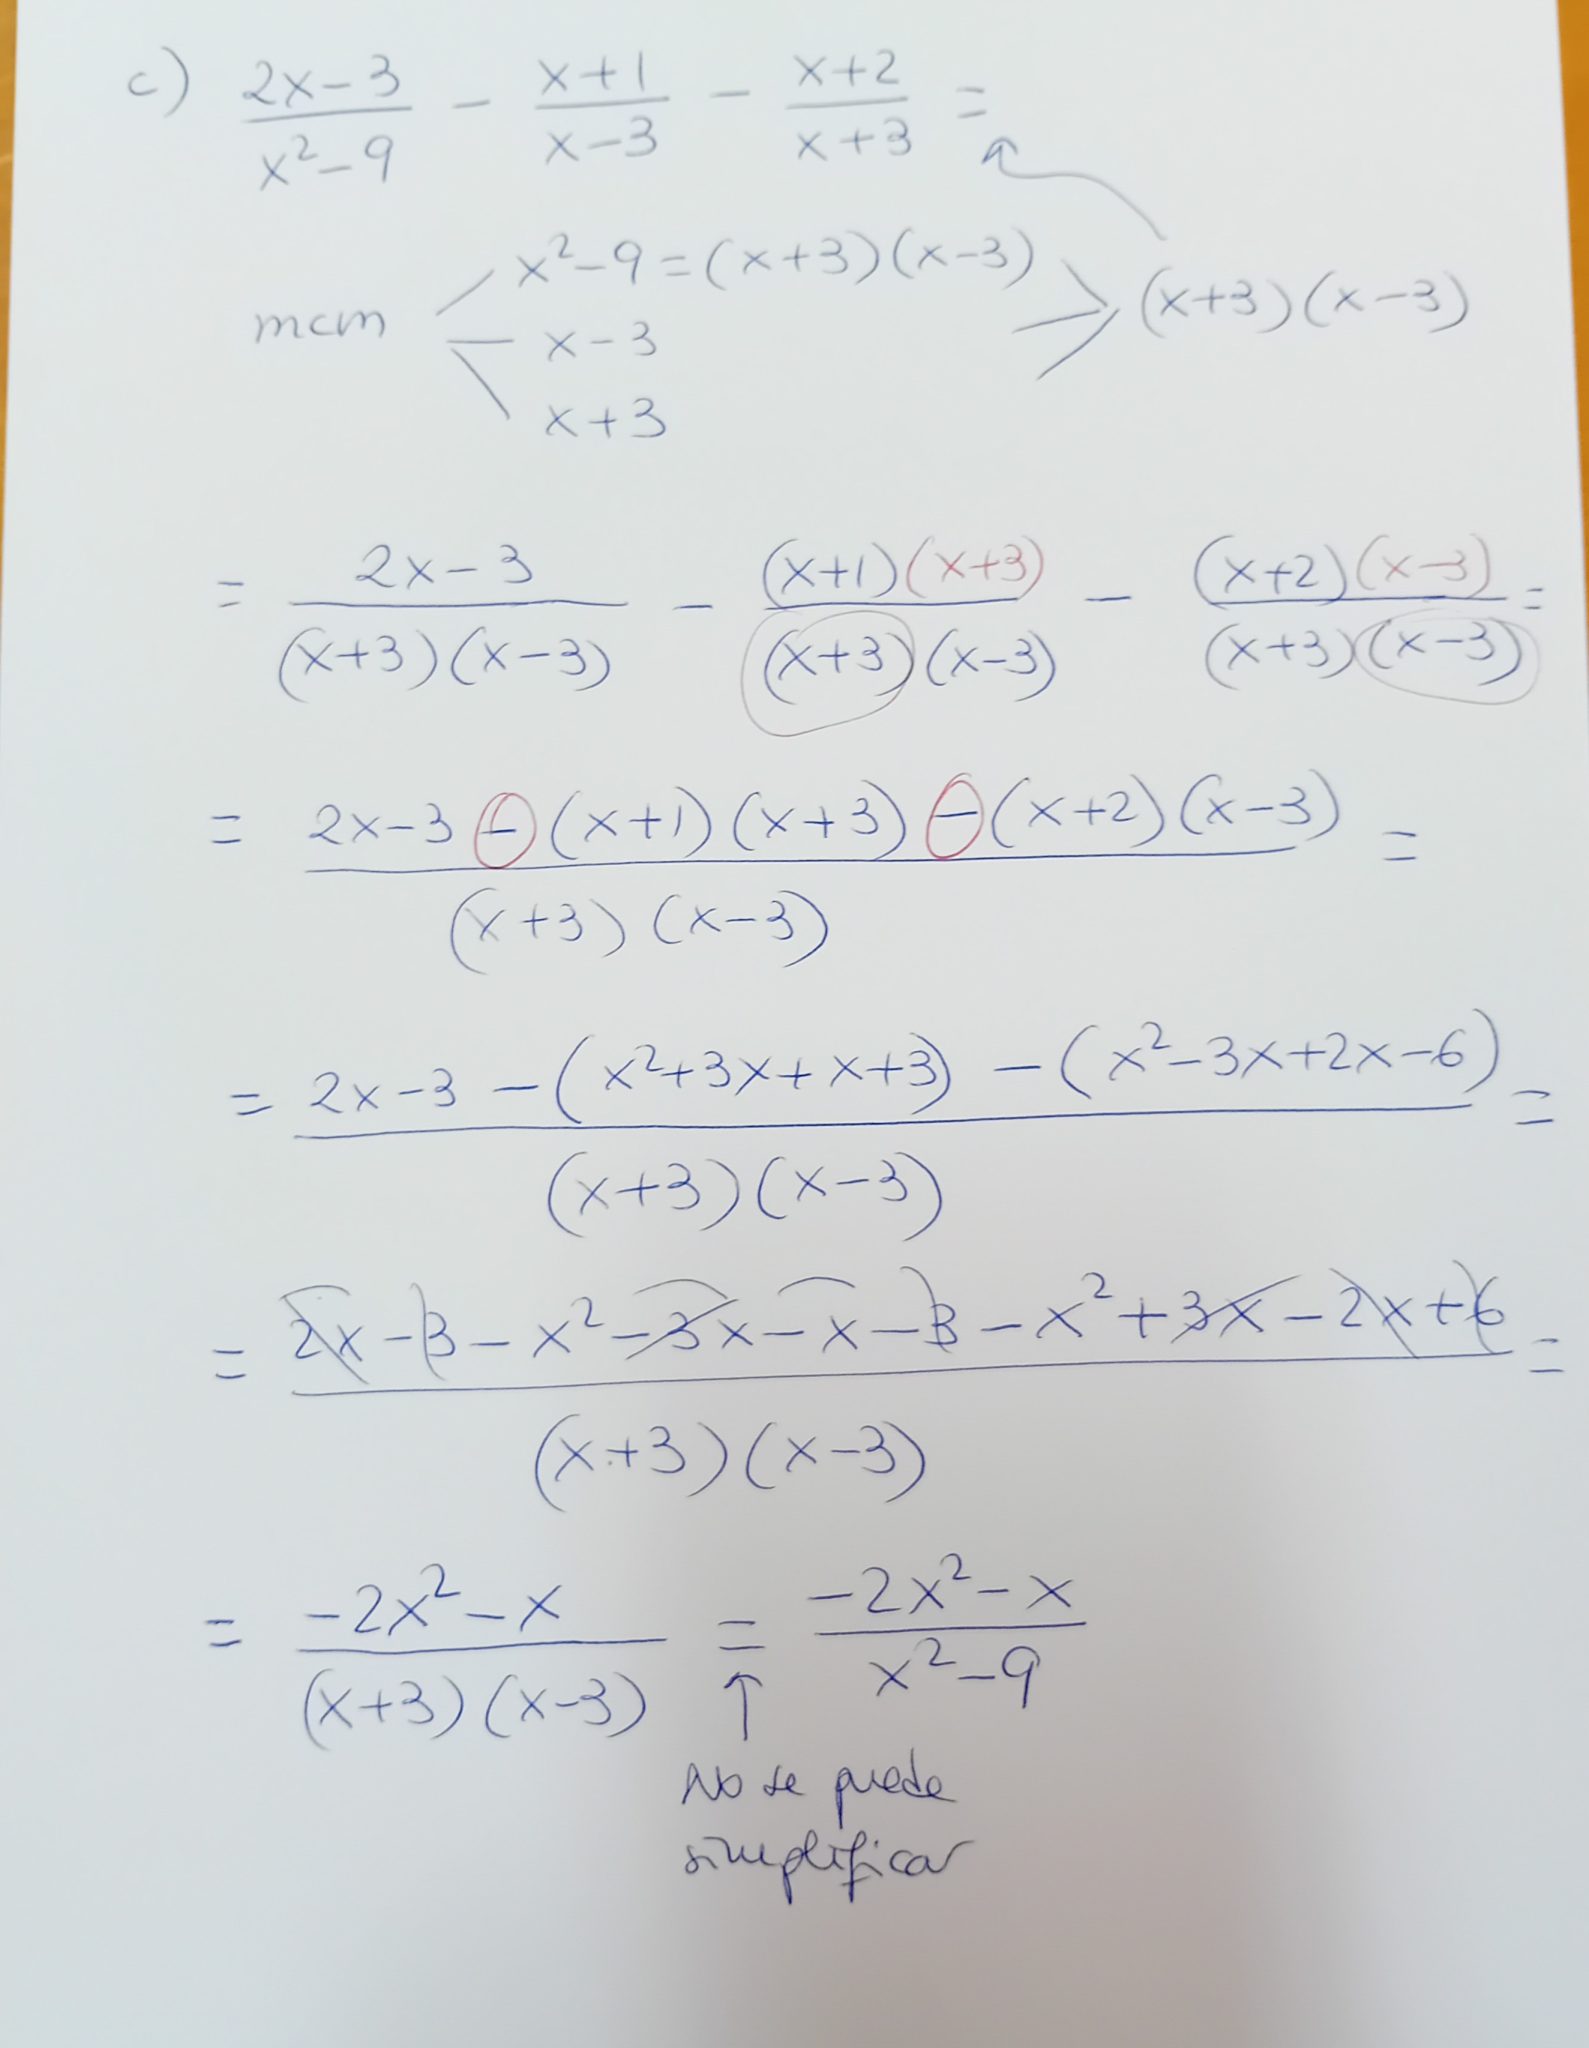 c) (2x-3)/(x²-9) - (x+1)/(x-3) - (x+2)/(x+3) =
x²-9=(x+3)(x-3)
mcm x-3 (x+3)(x-3)
x+3
= (2x-3)/((x+3)(x-3)) - ((x+1)(x+3))/((x+3)(x-3)) - ((x+2)(x-3))/((x+3)(x-3)) =
= (2x-3-(x+1)(x+3)-(x+2)(x-3))/((x+3)(x-3)) =
= (2x-3-(x²+3x+x+3)-(x²-3x+2x-6))/((x+3)(x-3)) =
= (2x-3-x²-3x-x-3-x²+3x-2x+6)/((x+3)(x-3)) =
= (-2x²-x)/((x+3)(x-3)) = (-2x²-x)/(x²-9)
No se puede
simplificar